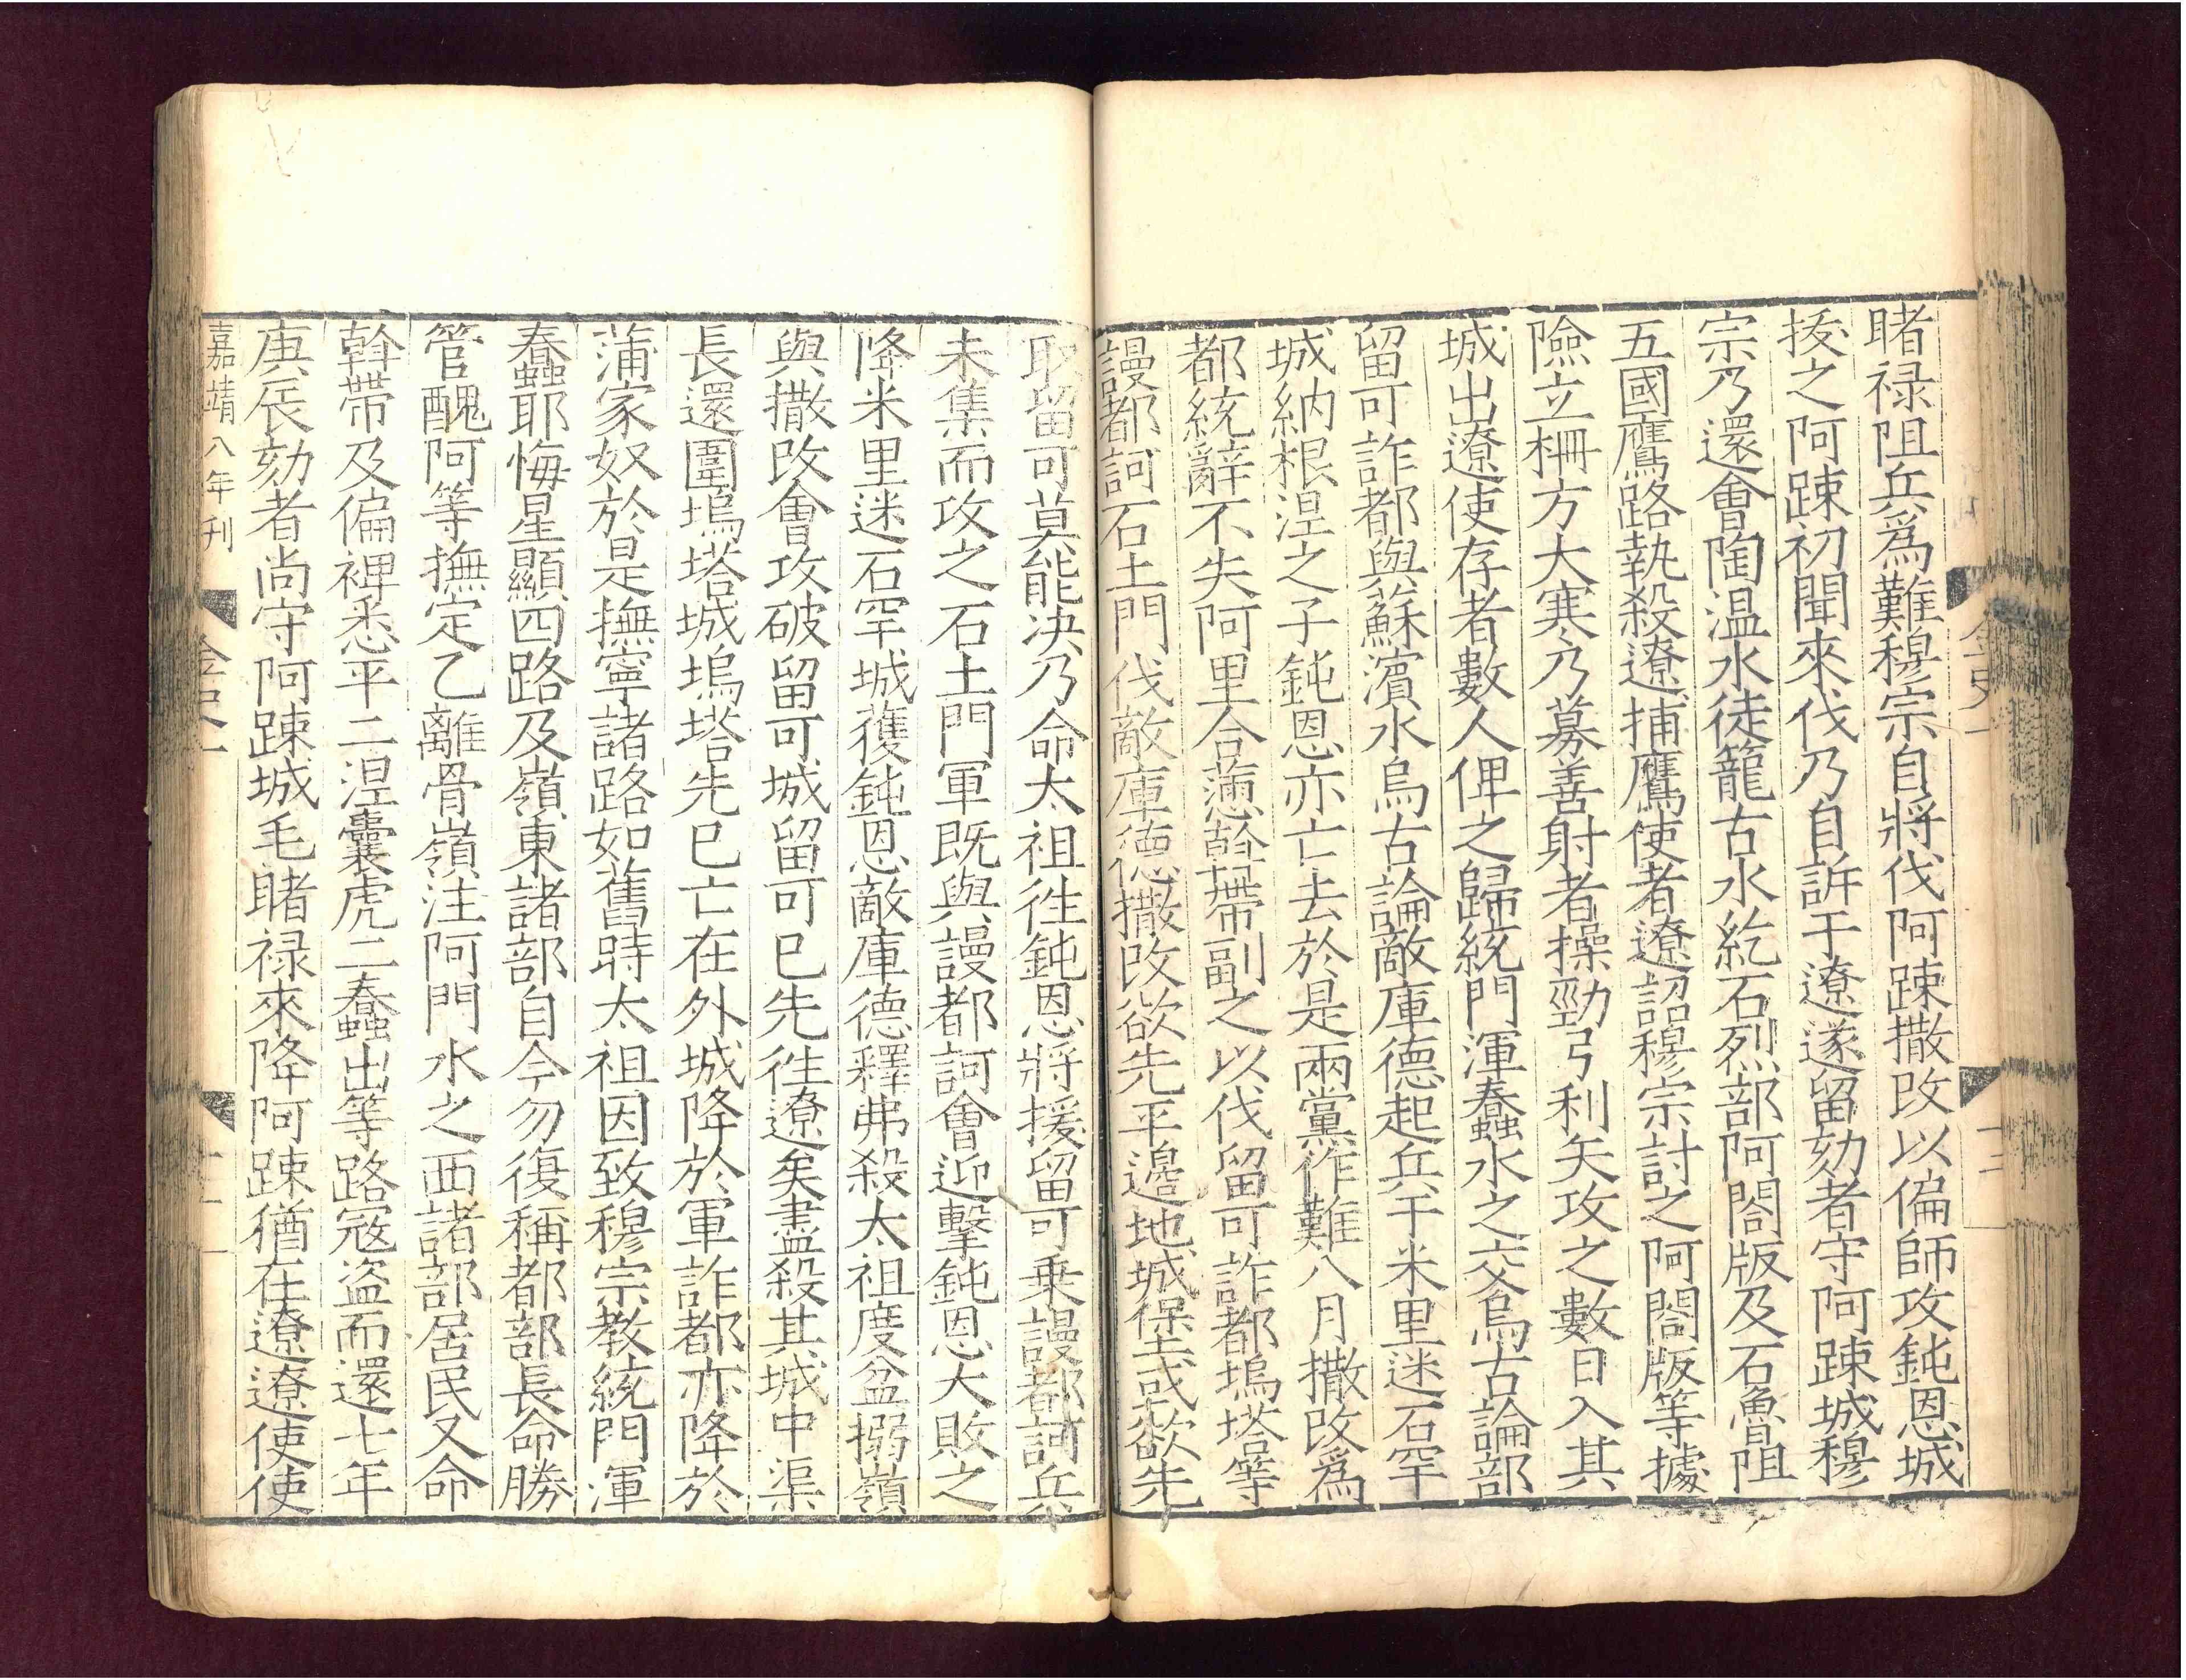 睹禄阻兵爲難穆宗自將伐阿踈撒改以偏師攻鈍恩城
㧞之阿踈初聞來伐乃自訴于遼遂留劾者守阿踈城穆
宗乃還會陶温水徒籠古水紇石烈部阿閤版及石魯阻
五國鷹路執殺遼捕鷹使者遼詔穆宗討之阿閤版等據
險立柵方大寒乃募善射者操勁弓利矢攻之數日入其
城出遼使存者數人俾之歸統門渾蠢水之交烏古論部
留可詐都與蘇濱水烏古論敵庫德起兵于米里迷石罕
城納根湼之子鈍恩亦亡去於是兩黨作難八月撒改爲
都統辭不失阿里合懣斡帶副之以伐留可詐都塢塔等
謾都訶石土門伐敵庫德撒改欲先平邊地城堡或欲先
取留可莫能决乃命太祖徃鈍恩將援留可乗謾都訶兵
未集而攻之石土門軍既與謾都訶會迎擊鈍恩大敗之
降米里迷石罕城獲鈍恩敵庫德釋弗殺太祖度盆搦嶺
與撒改會攻破留可城留可已先徃遼矣盡殺其城中渠
長還圍塢塔城塢塔先已亡在外城降於軍詐都亦降於
蒲家奴於是撫寧諸路如舊時太祖因致穆宗教統門渾
蠢耶悔星顯四路及嶺東諸部自今勿復稱都部長命勝
管醜阿等撫定乙離骨嶺注阿門水之西諸部居民又命
斡帶及偏裨悉平二湼囊虎二蠢出等路寇盗而還七年
庚辰劾者尚守阿踈城毛睹禄來降阿踈猶在遼遼使使
嘉靖八年刊
金史一